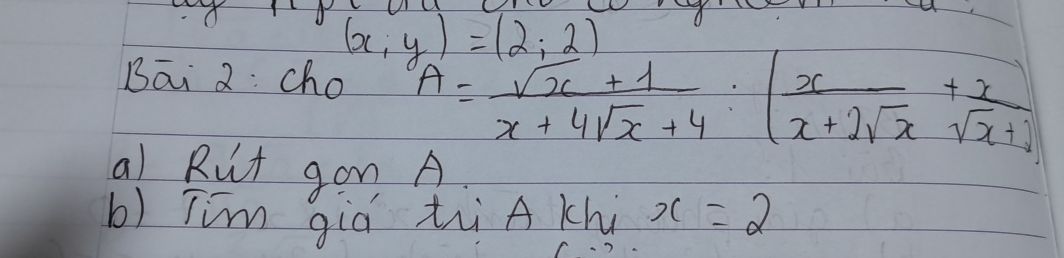 (x; y) = (2; 2)
Bài 2: Cho A = \frac{\sqrt{x} + 1}{x + 4\sqrt{x} + 4} : \left( \frac{x}{x + 2\sqrt{x}} + \frac{x}{\sqrt{x} + 2} \right)
a) Rút gọn A.
b) Tìm giá trị A khi x = 2